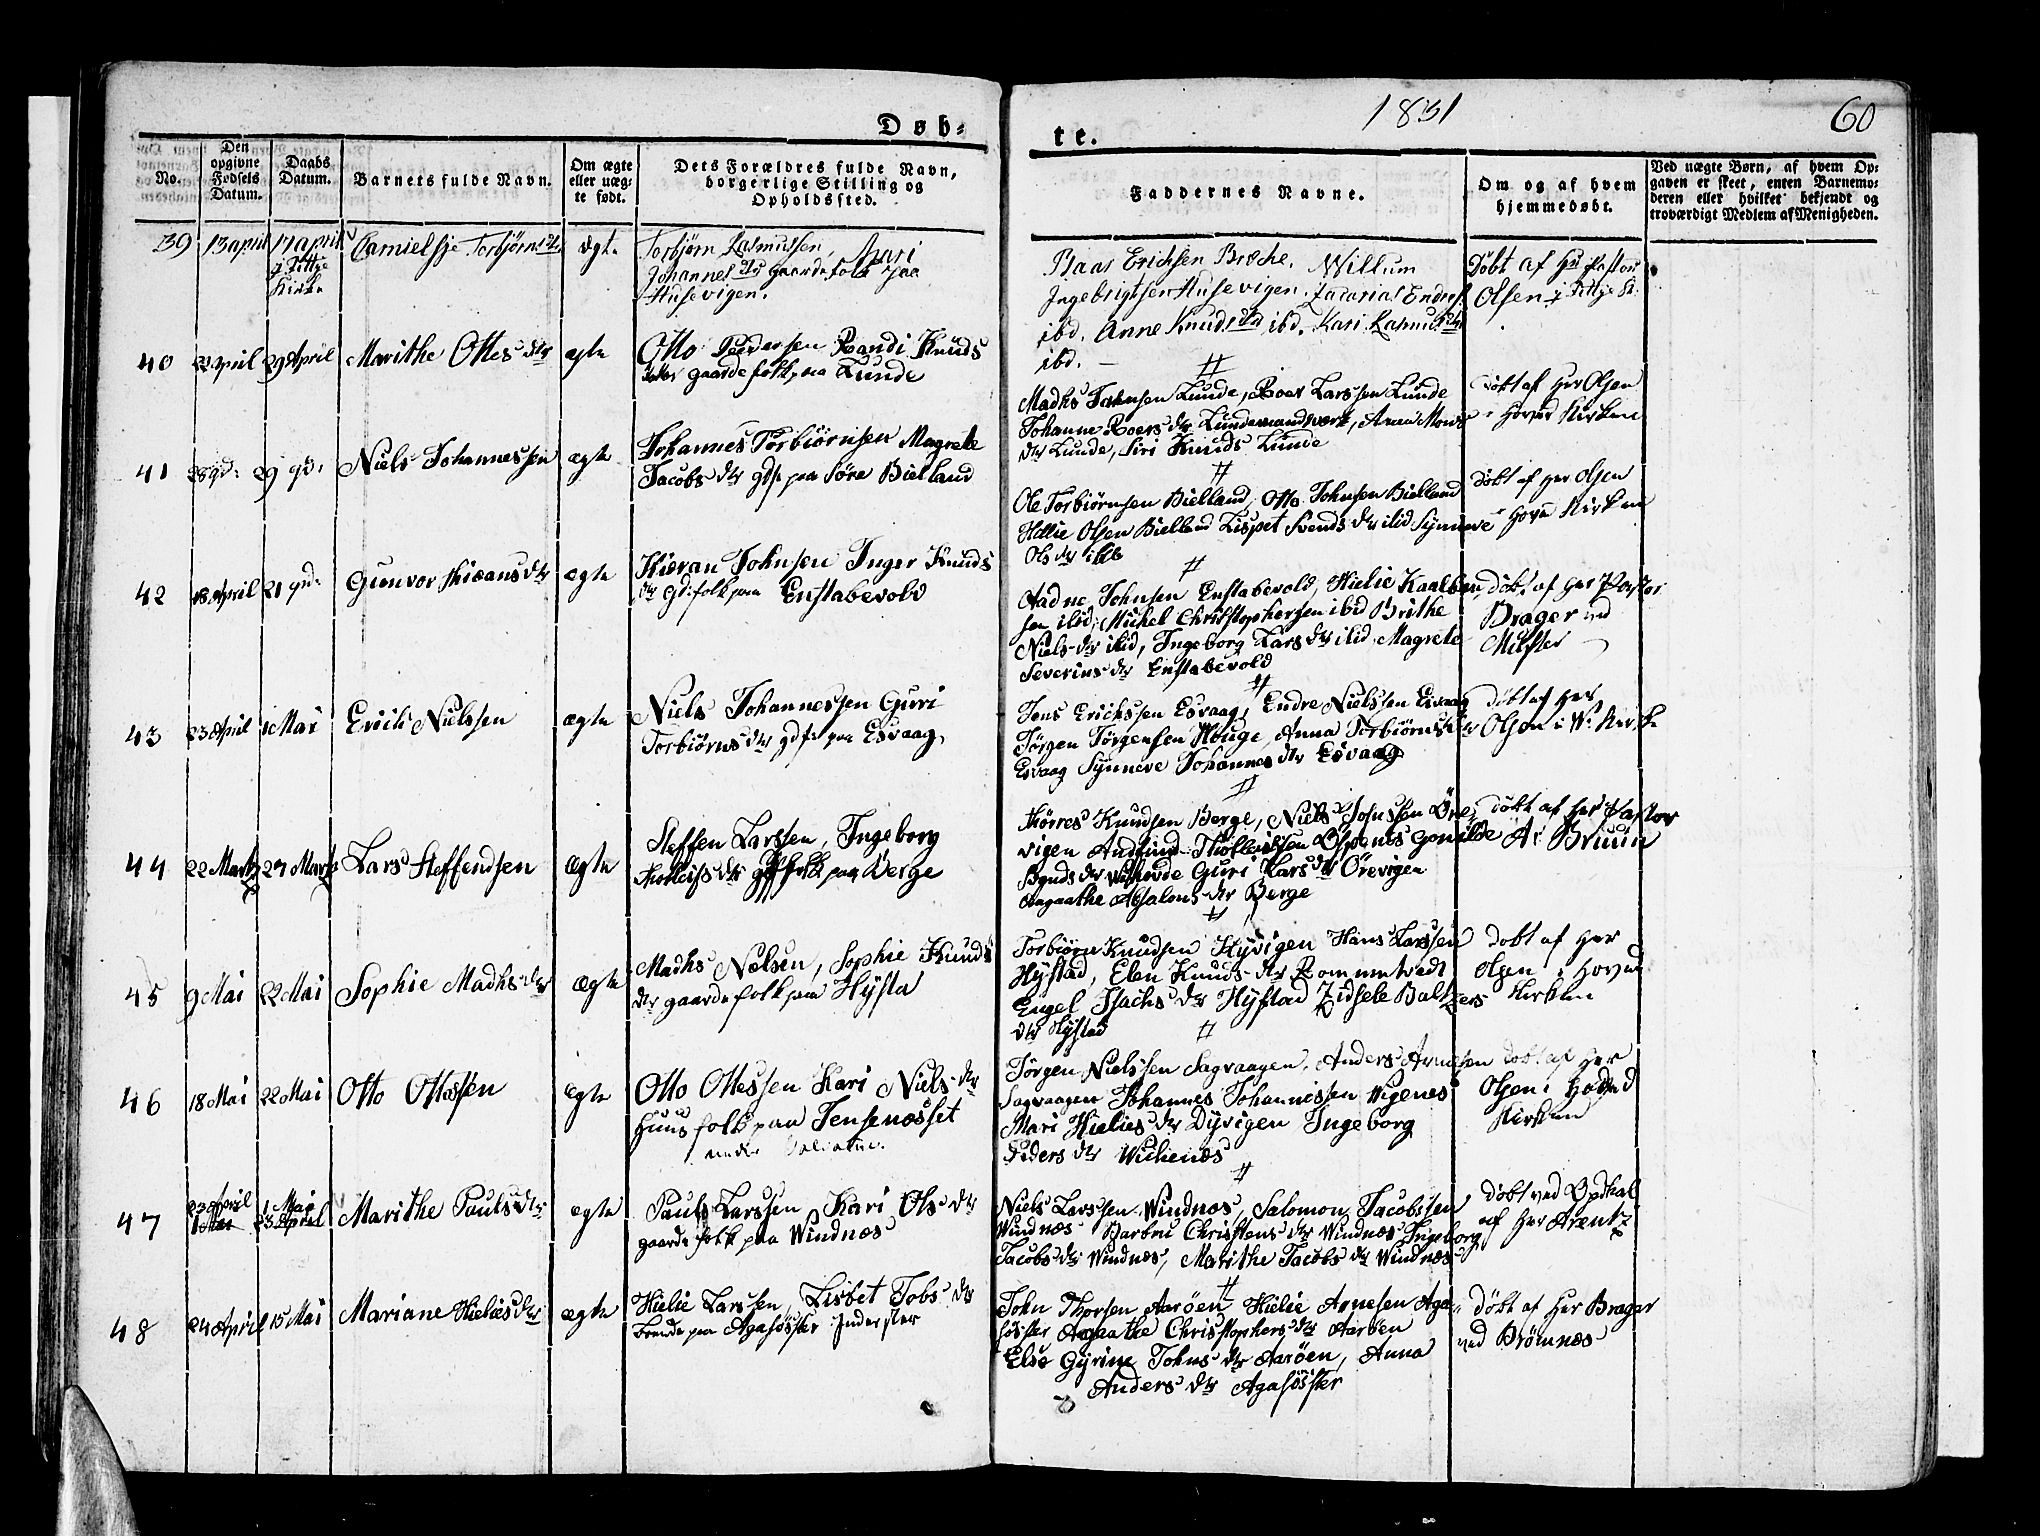 Døb-
te.
1831
60
No.
Den
opgivne
Fødsels
Datum.
Daabs
Datum.
Barnets fulde Navn.
Om ægte
eller uæg-
te født.
Dets Forældres fulde Navn,
borgerlige Stilling og
Opholdssted.
Faddernes Navne.
Om og af hvem
hjemmedøbt.
Ved uægte Børn, af hvem Op-
gaven er skeet, enten Barnemo-
deren eller hvilket bekjendt og
troværdigt Medlem af Menigheden.
39 13 april 17 april Torbjørnsdtr ægte Torbjørn Rasmussen, Kari
Johannesdtr gaardefolk paa
Husevigen.
Baar Erichsen Broche. Willum
Ingebrigtsen Husevigen. Zacarias Endres
ibd. Anne Knudsdtr ibd. Kari Rasmusdtr
ibd. —
Døbt af Hr Pastor
Olsen i Fittje K.
40 April 29 April Marithe Ottesdtr ægte Otto Pedersen Randi Knuds
datter gaardefolk paa Lunde
Madhs Johnsen Lunde, Roer Larssen Lunde
Johanne Roers dtr Lundemandsverk, Anna Mons
dtr Lunde, Siri Knuds Lunde
døbt af Her Olsen
i Hoved Kirken
41 28 qd: 29 qd: Niels Johannessen ægte Johannes Torbiörnsen Magrete
Jacobs dtr gdf. paa Söre Bielland
Ole Torbiörnsen Bielland, Otto Johnsen Bielland
Hillie Olsen Bielland Lispet Svends dtr ibid Synneve
Ols dtr ibid
døbt af Her Olsen
i Hoved Kirken
42 18 April 21 qd: Gunvor dtr ægte Kieran Johnsen Inger Knuds
dtr gd:folk paa Enstabevold
Aadne Johnsen Enstabevold, Hielie
sen ibid, Michel Christophersen ibid Brithe
Niels-dtr ibid, Ingeborg Lars dtr ibid Magrete
Severins dtr Enstabevold
døbt af Her Pastor
Brager ved
Milster
43 23 April 1 Mai Erich Nielssen ægte Niels Johannessen Guri
Torbiörns dtr gdf. paa Esvaag
Jens Erichssen Esvaag, Endre Nielssen Esvaag
Jörgen Jörgensen Houge, Anna Torbiörnsdtr
Esvaag Synneve Johannes dtr Esvaag
døbt af Her
Olsen i W. Kirke
44 22 Martz 27 Martz Lars Steffendsen ægte Steffen Larssen, Ingeborg
Thorleifs dtr folk paa Berge
Thörres Knudsen Berge, Niels Johnsen Öre-
vigen Andfind Thorleifsen Gonilde
dtr Guri Lars dtr Örevigen
Aagaathe Absalons dtr Berge
döbt af Her Pastor
Ar Bruun
45 9 Mai 22 Mai Sophie Madhs dtr ægte Madhs Nelsen, Sophie Knuds
dtr gaardefolk paa Hysta
Torbiörn Knudsen Hyvigen Hans Larssen
Hystad, Elen Knuds-dtr Rommetvedt
Engel Isachs dtr Hystad Zidsele Baltzers
dtr Hystad
dobt af Her
Olsen i Hoved
Kirken
46 18 Mai 22 Mai Otto Ottesen ægte Otto Ottessen Kari Niels-dtr
Huusfolk paa Jensenæsset
under
Jörgen Nielssen Sagvaagen, Anders Arnesen
Sagvaagen Johannes Johannissen Wigenes
Mari Hielies dtr Dyvigen Ingeborg
Peders dtr
dobt af Her
Olsen i Hoved
Kirken
47 23 April 1 Mai Marithe Pauls dtr ægte Pauls Larssen Kari Ols dtr
gaardefolk paa Windnæs
Niels Larssen Windnæs, Salomon Jacobssen
Windnæs Barbru Christens dtr Windnæs Ingeborg
Jacobs dtr Windnæs, Marithe Jacobs dtr Windnæs
döbt ved Opdhal
af Her Arentz
48 24 April 15 Mai Mariane Hielies dtr ægte Hielie Larssen, Lisbet Jobs dtr
brende paa Agasöster Inderster
John Thorsen Aaröen Hielie Arnesen Aga-
söster Agaathe Christophers dtr Aaröen
Else Gyrine Johns dtr Aaröen, Anna
Anders dtr Agasöster
döbt af Her Brager
ved Brömnæs